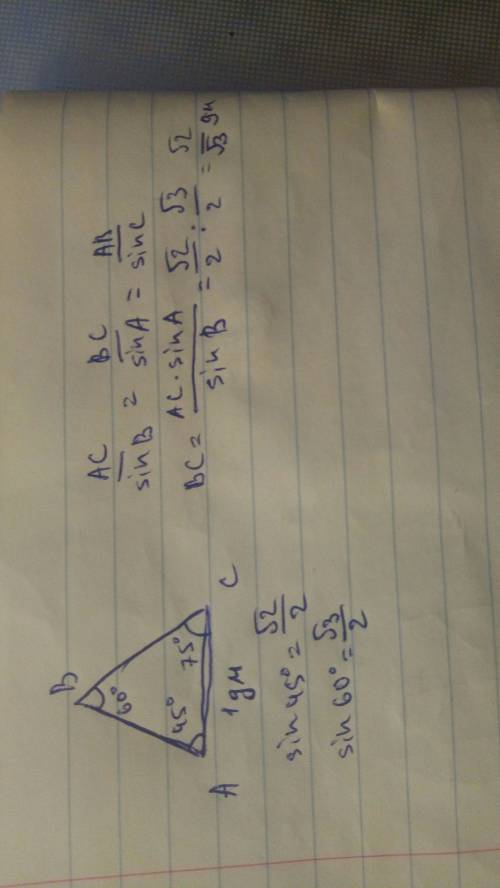 B
60°
45° 75°
A 1 дм C
sin 45° = √2/2
sin 60° = √3/2
AC/sin B = BC/sin A = AB/sin C
BC = AC · sin A/sin B = √2/2 : √3/2 = √2/√3 дм